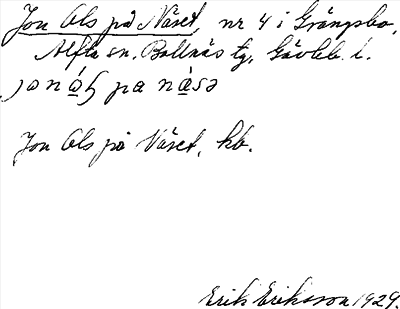 Jon Ols på Näset, nr 4 i Grängsbo,
Alfta sn. Bollnäs tg, Gävleb. l.
Jon Ols på Näset, kb.
Erik Eriksson 1929.